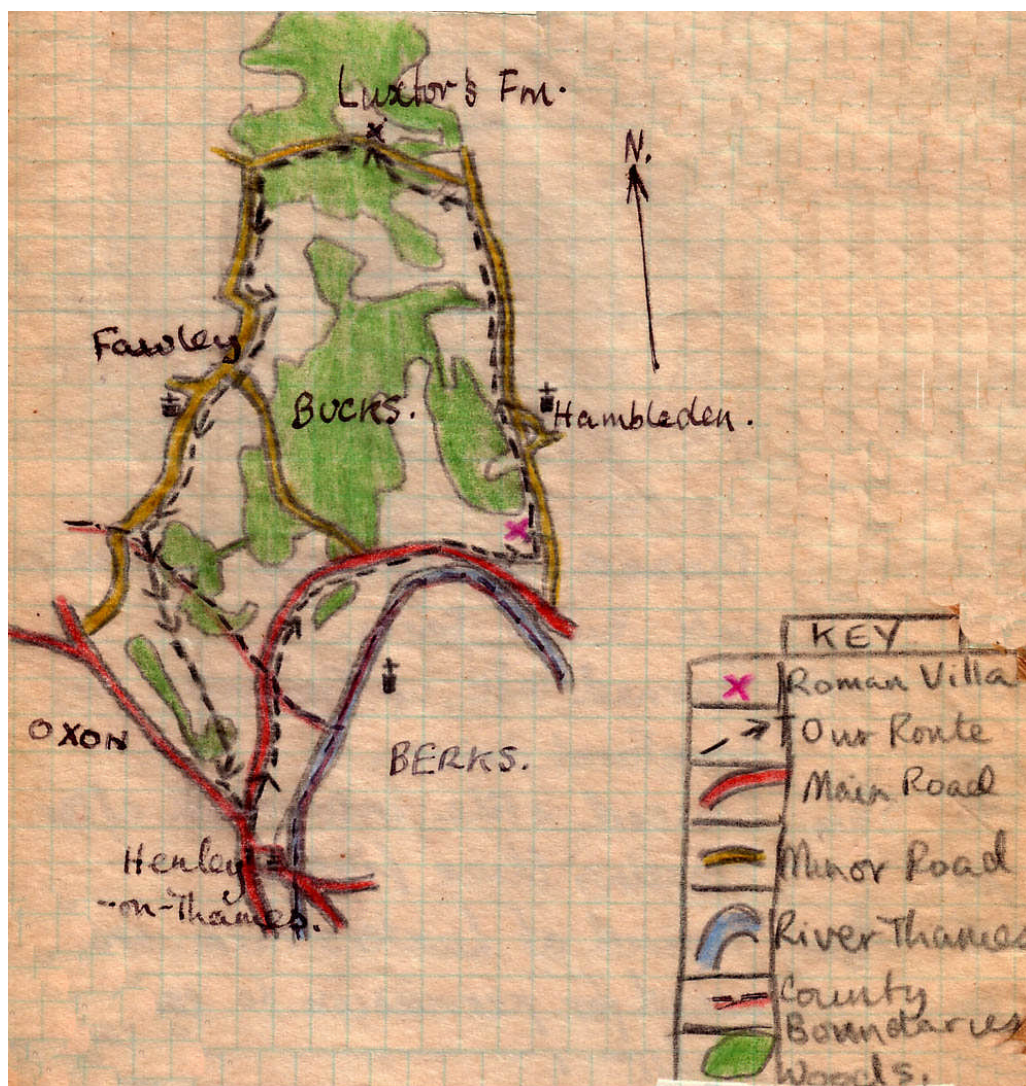 Luxtor's Fm.
N.
Fawley
BUCKS.
Hambleden.
OXON
BERKS.
Henley
-on-Thames.
KEY
Roman Villa
Our Route
Main Road
Minor Road
River Thames
County
Boundaries
Woods.